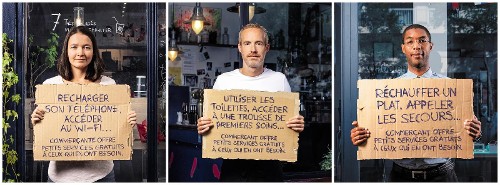 7
RECHARGER
SON TÉLÉPHONE,
ACCÉDER
AU WI-FI...
COMMERÇANTE OFFRE
PETITS SERVICES GRATUITS
À CEUX QUI EN ONT BESOIN.
UTILISER LES
TOILETTES, ACCÉDER
À UNE TROUSSE DE
PREMIERS SOINS...
COMMERÇANT OFFRE
PETITS SERVICES GRATUITS
À CEUX QUI EN ONT BESOIN.
RÉCHAUFFER UN
PLAT, APPELER
LES SECOURS...
COMMERÇANT OFFRE
PETITS SERVICES GRATUITS
À CEUX QUI EN ONT BESOIN.